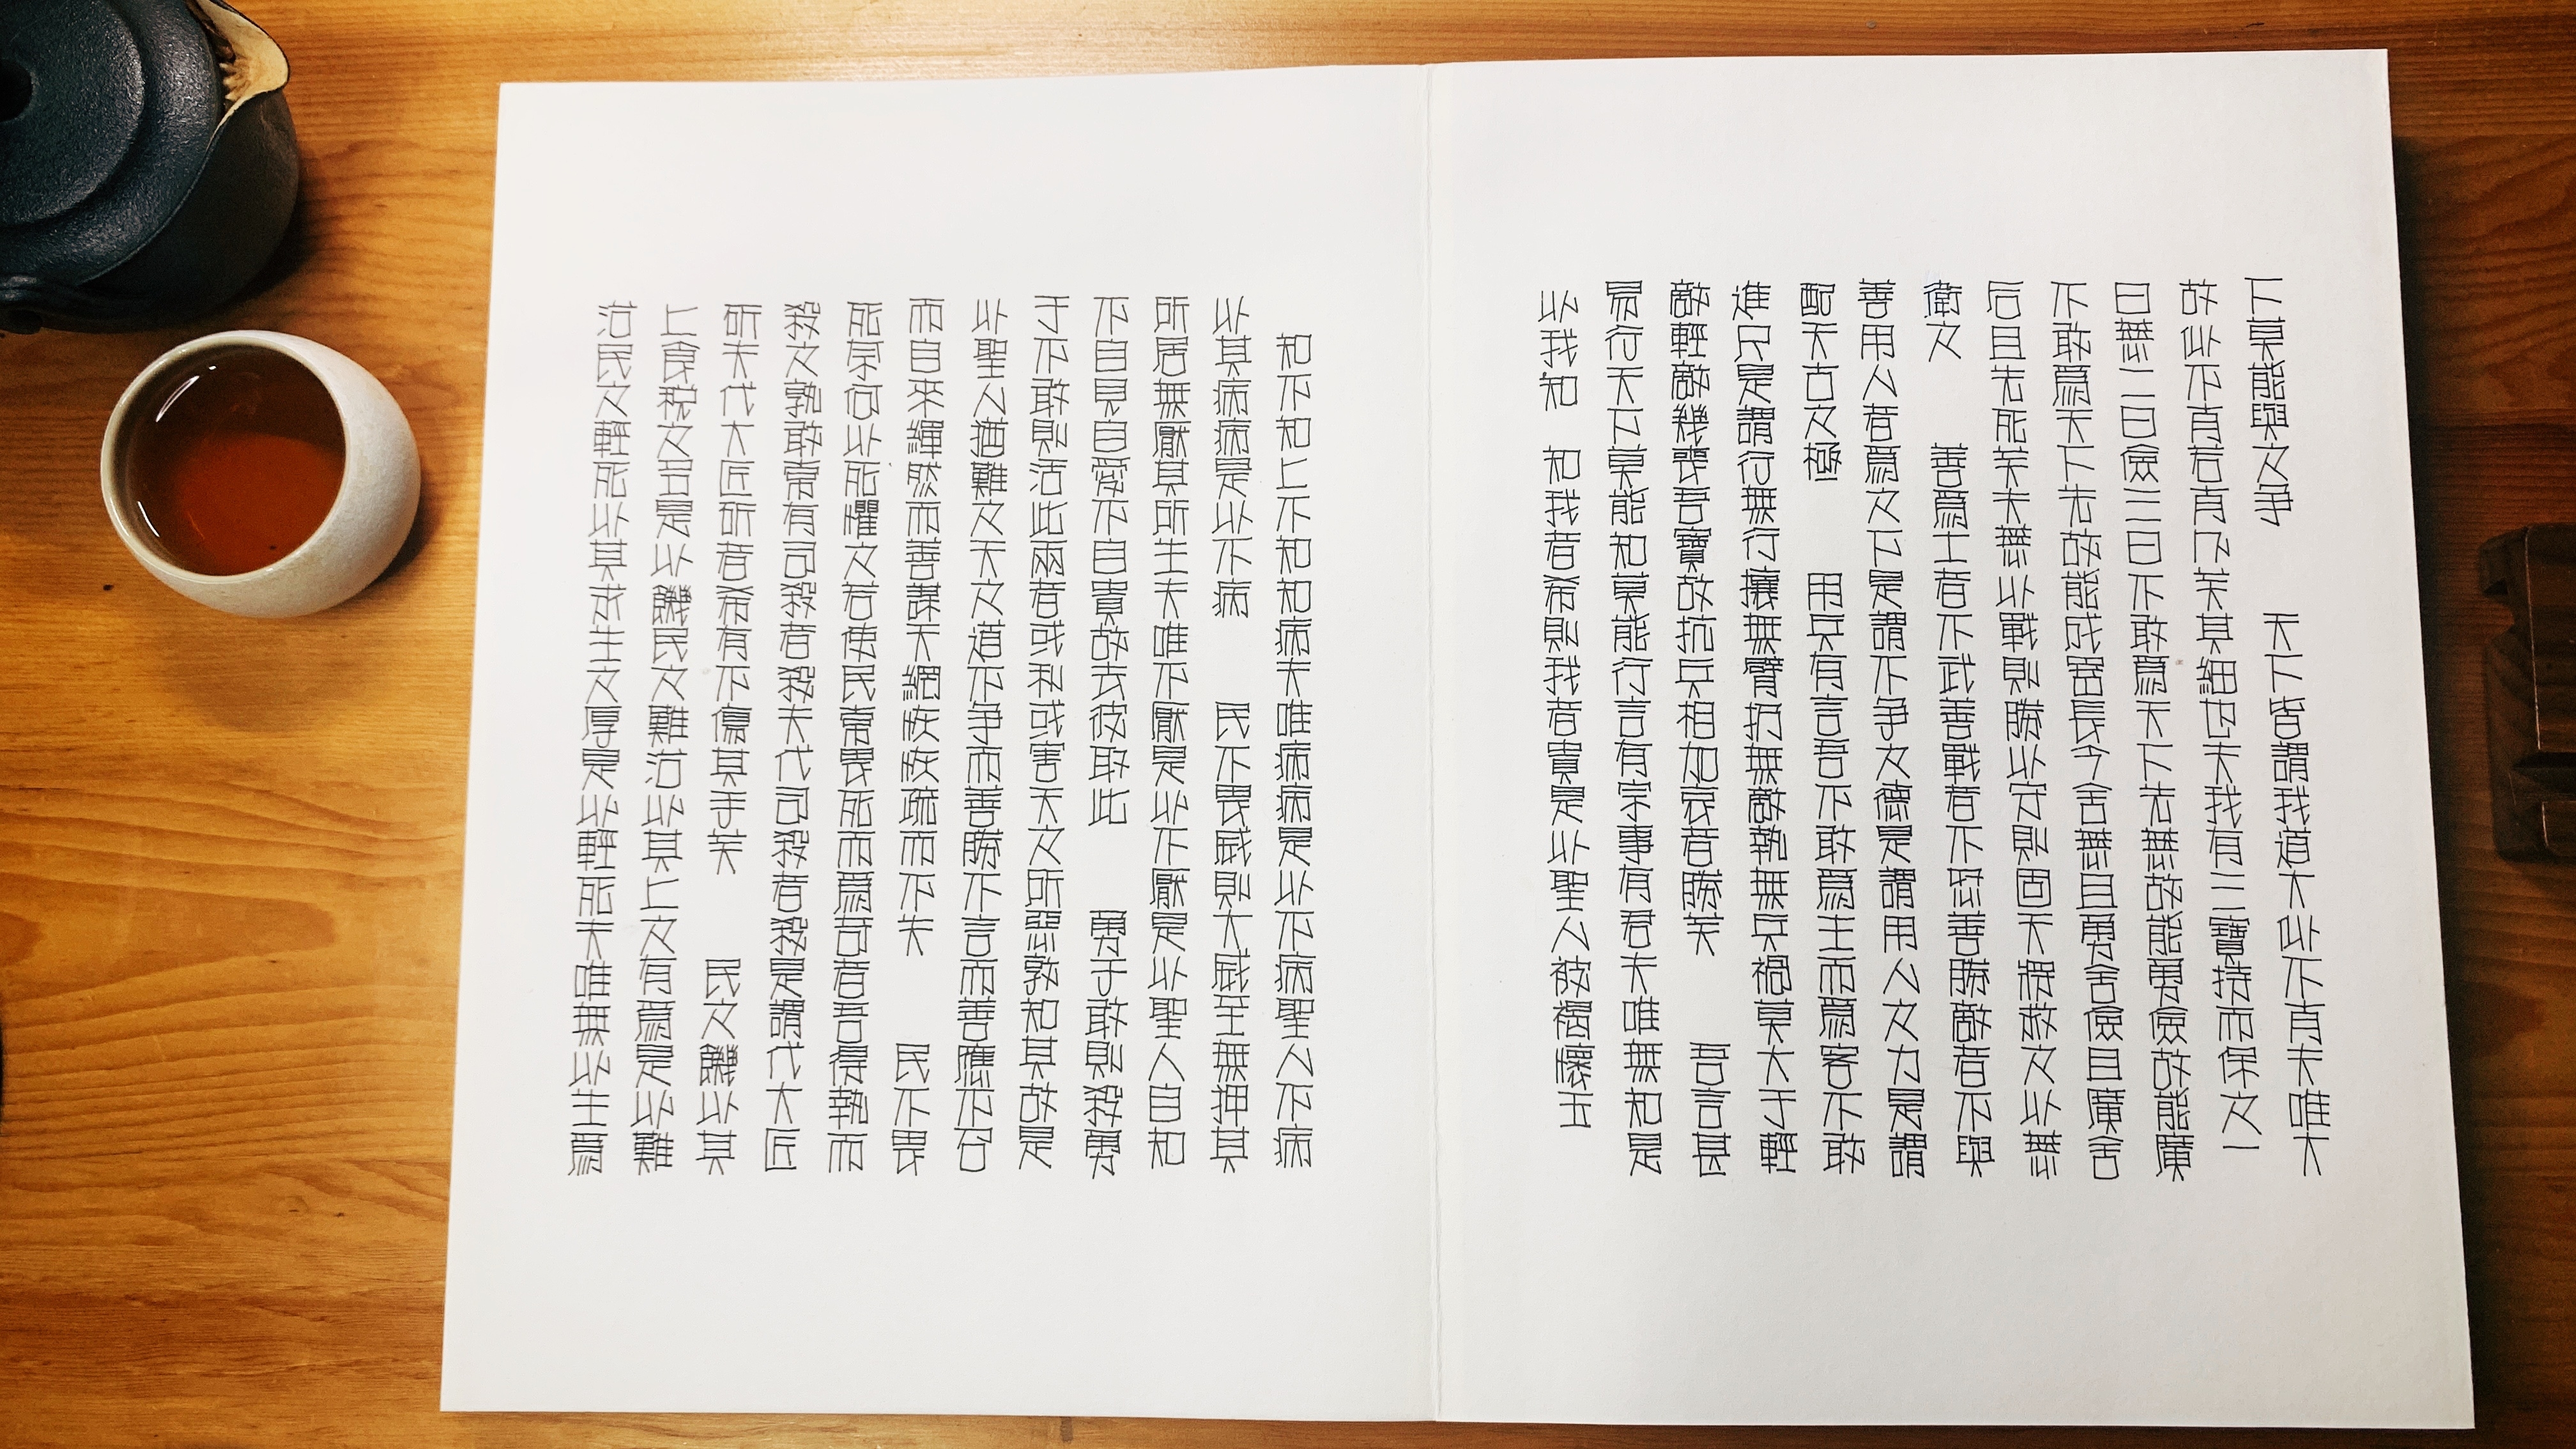 下莫能與之争　天下皆謂我道大似不肖夫唯大
故似不肖若肖久矣其細也夫我有三寶持而保之一
曰慈二曰儉三曰不敢爲天下先慈故能勇儉故能廣
不敢爲天下先故能成器長今舍慈且勇舍儉且廣舍
后且先死矣夫慈以戰則勝以守則固天將救之以慈
衛之　善爲士者不武善戰者不怒善勝敵者不與
善用人者爲之下是謂不争之德是謂用人之力是謂
配天古之極　用兵有言吾不敢爲主而爲客不敢
進尺是謂行無行攘無臂扔無敵執無兵禍莫大于輕
敵輕敵幾喪吾寶故抗兵相加哀者勝矣　吾言甚
易行天下莫能知莫能行言有宗事有君夫唯無知是
以我知　知我者希則我者貴是以聖人被褐懷玉
知不知上不知知病夫唯病病是以不病聖人不病
以其病病是以不病　民不畏威則大威至無押其
所居無厭其所生夫唯不厭是以不厭是以聖人自知
不自見自愛不自貴故去彼取此　勇于敢則殺勇
于不敢則活此兩者或利或害天之所惡孰知其故是
以聖人猶難之天之道不争而善勝不言而善應不召
而自來繟然而善謀天網恢恢疏而不失　民不畏
死奈何以死懼之若使民常畏死而爲奇者吾得執而
殺之孰敢常有司殺者殺夫代司殺者殺是謂代大匠
斫夫代大匠斫者希有不傷其手矣　民之饑以其
上食稅之多是以饑民之難治以其上之有爲是以難
治民之輕死以其求生之厚是以輕死夫唯無以生爲